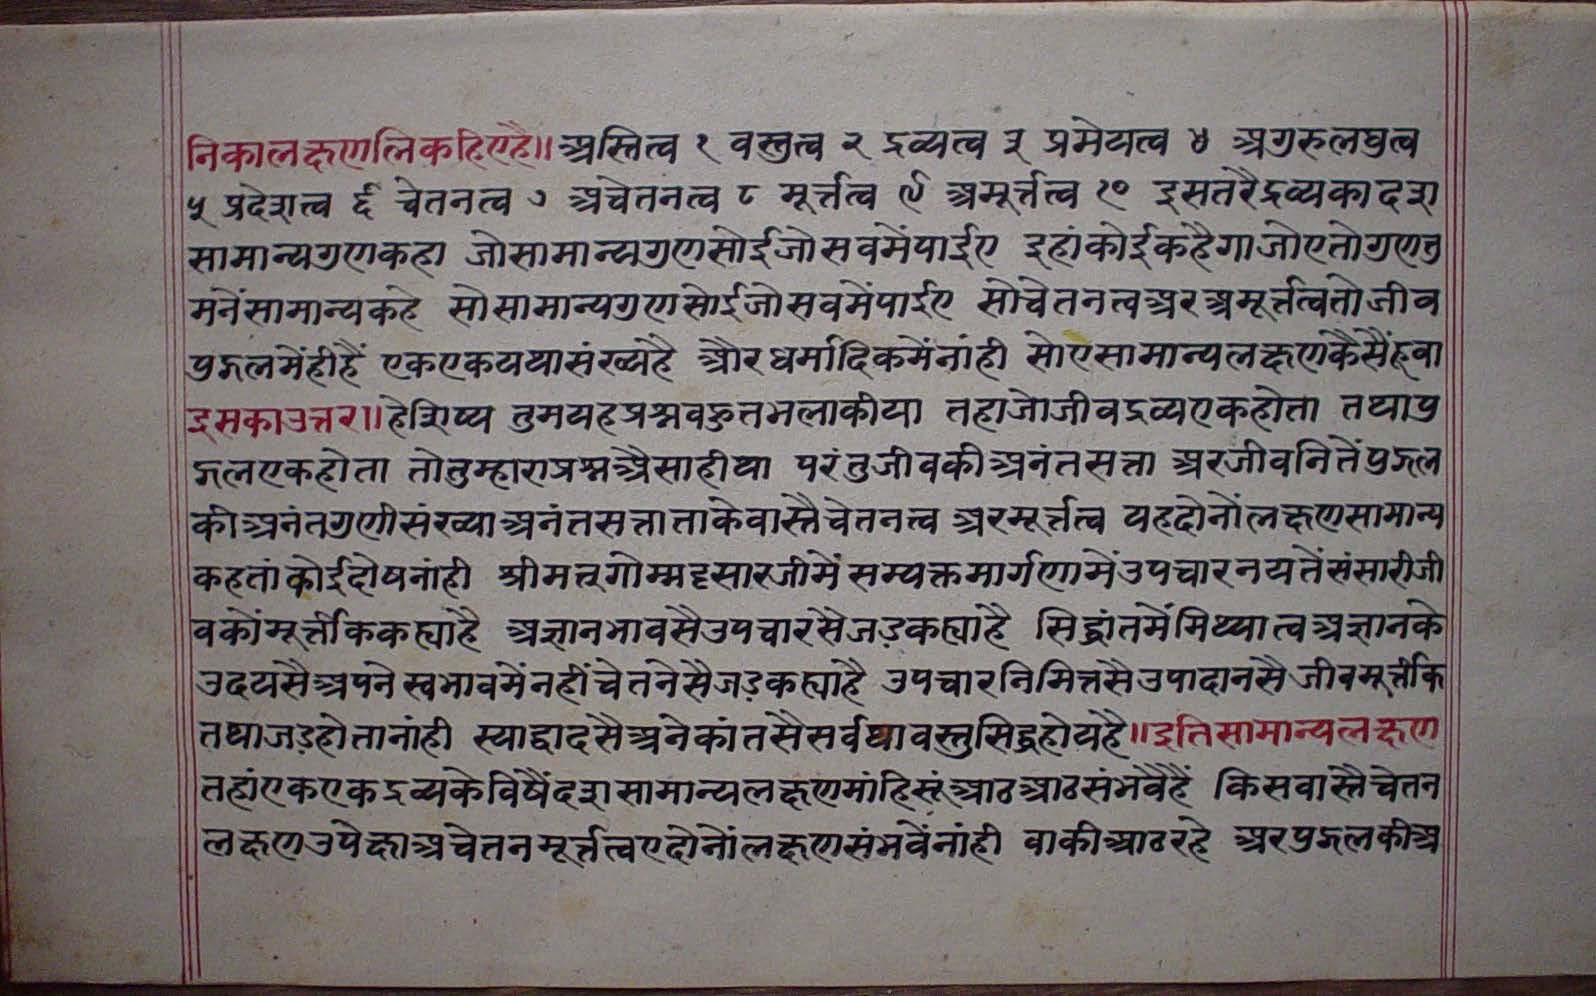 निकालक्षणलिकहिएहै॥ अस्तित्व १ वस्तुत्व २ द्रव्यत्व ३ प्रमेयत्व ४ अगुरुलघुत्व
५ प्रदेशत्व ६ चेतनत्व ७ अचेतनत्व ८ मूर्त्तत्व ९ अमूर्त्तत्व १० इसतरैद्रव्यकादश
सामान्यगुणकहा जोसामान्यगुणसोईजोसवमेंपाईए इहांकोईकहैगाजोएतोगुणतु
मनेंसामान्यकहे सोसामान्यगुणसोईजोसवमेंपाईए सोचेतनत्वअरअमूर्त्तत्वतोजीव
पुद्गलमेंहीहैं एकएकयथासंख्यहै औरधर्मादिकमेंनांही सोएसामान्यलक्षणकैसैंहूवा
इसकाउत्तर॥ हेशिष्य तुमयहप्रश्नवऊतभलाकीया तहाजोजीवद्रव्यएकहोता तथापु
द्गलएकहोता तोतुम्हाराप्रश्नअैसाहीथा परंतुजीवकीअनंतसत्ता अरजीवनितेंपुद्गल
कीअनंतगुणीसंख्याअनंतसत्ताताकेवास्तैचेतनत्व अरमूर्त्तत्व यहदोनोंलक्षणसामान्य
कहतांकोईदोषनांही श्रीमत्गोम्मट्टसारजीमें सम्यक्तमार्गणामेंउपचारनयतेंसंसारीजी
वकोंमूर्त्तीककह्याहै अज्ञानभावसैउपचारसैजड़कह्याहै सिद्धांतमेंमिथ्यात्वअज्ञानके
उदयसैअपनेस्वभावमेंनहींचेतनेसैजड़कह्याहै उपचारनिमित्तसैउपादानसैजीवमूर्त्तीक
तथाजड़होतानांही स्याद्वादसैअनेकांतसैसर्वथावस्तुसिद्धहोयहै॥ इतिसामान्यलक्षण
तहांएकएकद्रव्यकेविषैंदशसामान्यलक्षणमांहिसूंआठआठसंभवैहैं किसवास्तैचेतन
लक्षणउपेक्षाअचेतनमूर्त्तत्वएदोनोंलक्षणसंभवेंनांही वाकीआठरहे अरपुद्गलकीअ